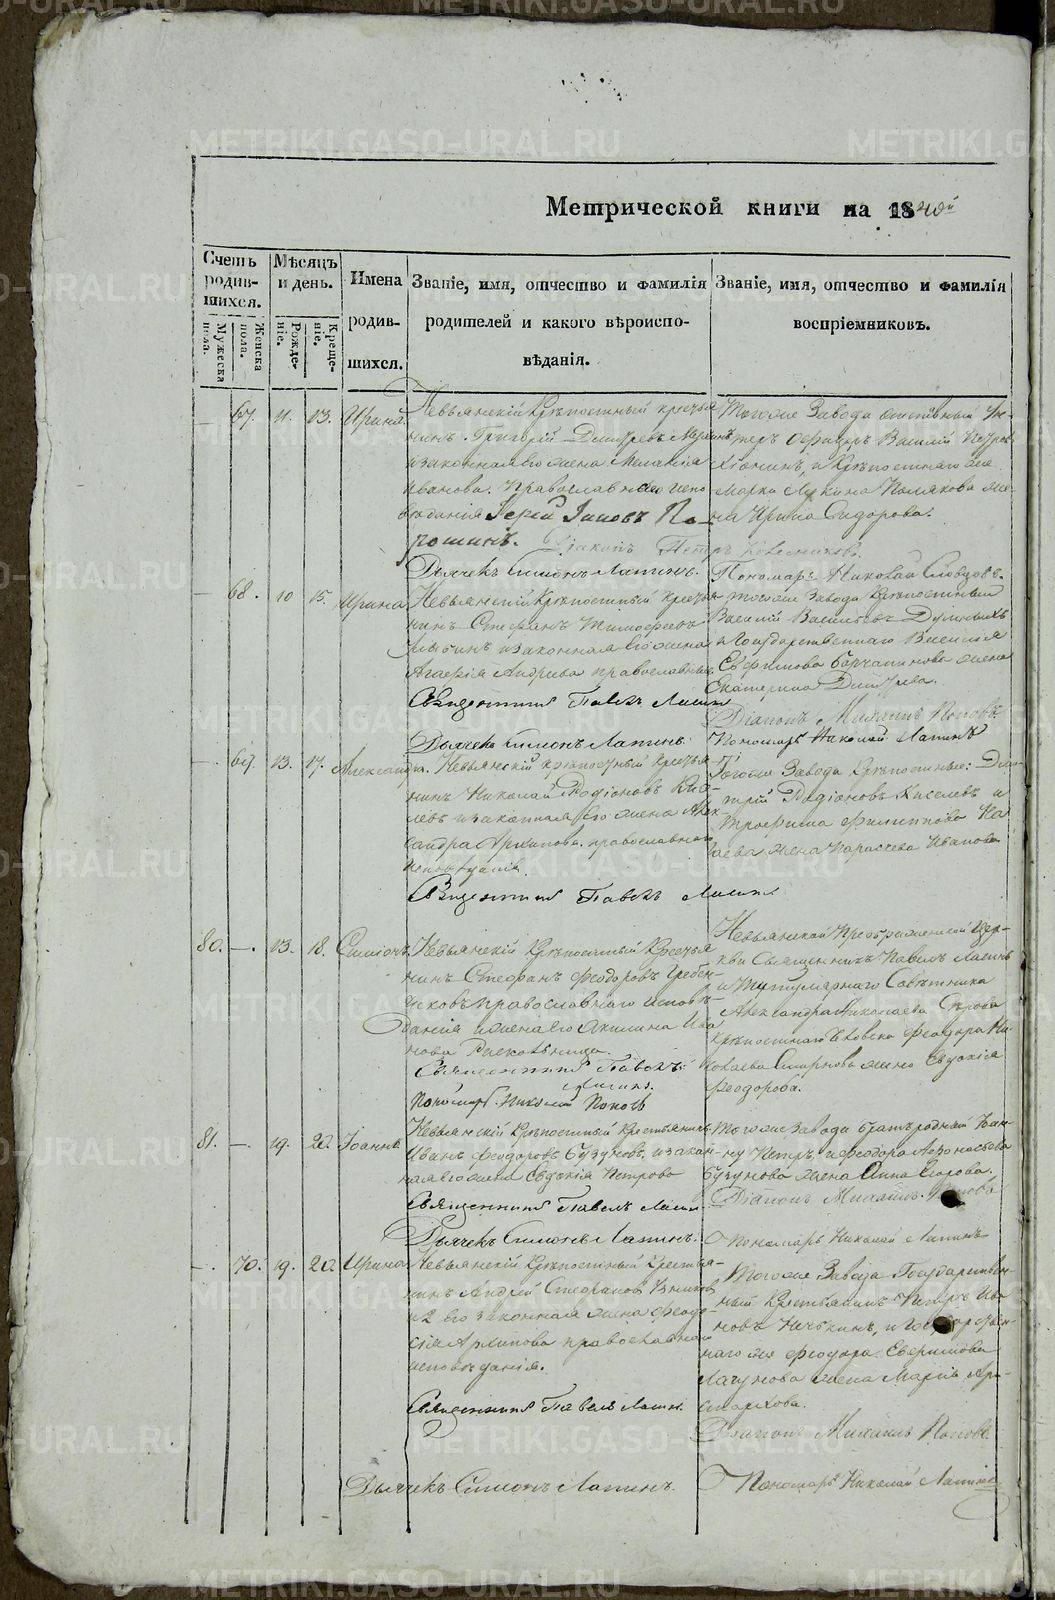 Метрической книги на 1840й
Счетъ родив-шихся.
Мужеска пола.
Женска пола.
Мѣсяцъ и день.
Рожде-ніе.
Креще-ніе.
Имена
родив-
шихся.
Званіе, имя, отчество и фамилія
родителей и какого вѣроиспо-
вѣданія.
Званіе, имя, отчество и фамилія
воспріемниковъ.
67. 11. 13. Ирина
Невьянскій Крѣпостный кресть-
нинъ Григорій Дмитревъ
и законная его жена Меланія
Иванова. Православнаго испо
вѣданія Іерей Іаковъ По-
рошинъ. Діаконъ Петръ Колесниковъ.
Дьячекъ Симеонъ Лапинъ.
Тогоже Завода отставный Ун-
теръ Офицеръ Василій Петров
и Крѣпостнаго же
Марка Лукина Полякова же-
на Ирина Сидорова.
Пономарь Николай Словцовъ.
68. 10 15. Ирина
Невьянскій Крѣпостный Кресть
нинъ Стефанъ Тимофеевъ
и законная его жена
Агафія Андреева православныя
Священникъ Павелъ Лапинъ
Дьячекъ Симеонъ Лапинъ.
Тогоже Завода Крѣпостный
Василій Васильевъ
и Государственнаго Василія
Евфимова жена
Екатерина Дмитрева.
Діаконъ Михаилъ Поповъ.
Пономарь Николай Лапинъ
69. 13. 17. Александра.
Невьянскій крѣпостный Кресть
нинъ Николай Родіоновъ Кисе-
левъ и законная его жена Алек-
сандра Архипова. православнаго
исповѣданія.
Священникъ Павелъ Лапинъ
Тогоже Завода Крѣпостные: Дми-
трій Родіоновъ Киселевъ и
Трофима Филиппова
жена Парасева Иванова
80. —. 13. 18. Симеонъ.
Невьянскій Крѣпостный Кресть
нинъ Стефанъ Феодоровъ Гребен-
щиковъ православнаго исповѣ-
данія и жена его Акилина Ива
нова Раскольница.
Священникъ Павелъ
Лапинъ.
Пономарь Николай Поповъ
Невьянской Преображенской Цер-
кви Священникъ Павелъ Лапинъ
и Титулярнаго Совѣтника
Александра Николаева
Крѣпостнаго Человека Феодора Ни
колаева Смирнова жена Евдокія
Феодорова.
81. —. 19. 20. Іоаннъ
Невьянскій Крѣпостный Крестьянинъ
Иванъ Феодоровъ Бузуновъ, и закон-
ная его жена Евдокія Петрова
Священникъ Павелъ Лапинъ
Дьячекъ Симеонъ Лапинъ.
Тогоже Завода
Петръ, и Феодора Афонасьева
Бузунова жена Анна Егорова.
Діаконъ Михаилъ Поповъ
Пономарь Николай Лапинъ
—. 70. 19. 20. Ирина
Невьянскій Крѣпостный Крестья-
нинъ Андрей Стефановъ
и его законная жена Феодо-
сія Архипова православнаго
исповѣданія.
Священникъ Павелъ Лапинъ.
Дьячекъ Симеонъ Лапинъ.
Тогоже Завода Государствен-
ный Крестьянинъ Петръ Ива
новъ и Государствен-
наго же Феодора Евфимова
Лагунова жена Марія Ари-
стархова.
Діаконъ Михаилъ Поповъ
Пономарь Николай Лапинъ
METRIKI.GASO-URAL.RU